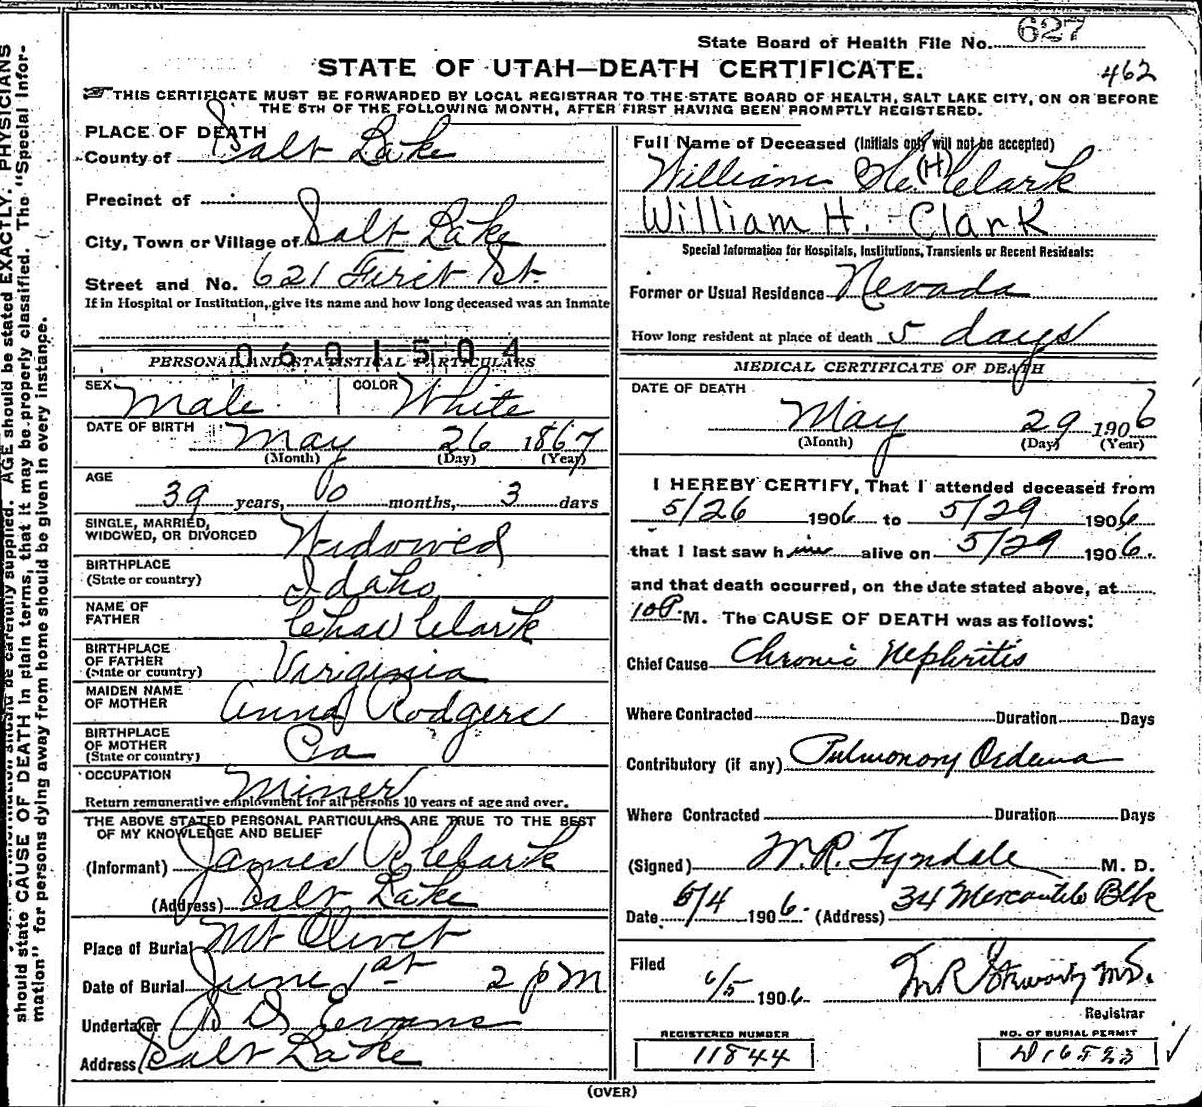 State Board of Health File No. 627
STATE OF UTAH—DEATH CERTIFICATE.
462
THIS CERTIFICATE MUST BE FORWARDED BY LOCAL REGISTRAR TO THE STATE BOARD OF HEALTH, SALT LAKE CITY, ON OR BEFORE
THE 5TH OF THE FOLLOWING MONTH, AFTER FIRST HAVING BEEN PROMPTLY REGISTERED.
PLACE OF DEATH
County of Salt Lake
Precinct of
City, Town or Village of Salt Lake
Street and No. 621 First St.
If in Hospital or Institution, give its name and how long deceased was an inmate
0601504
PERSONAL AND STATISTICAL PARTICULARS
SEX Male COLOR White
DATE OF BIRTH May 26 1867
(Month) (Day) (Year)
AGE
39 years, 0 months, 3 days
SINGLE, MARRIED,
WIDOWED, OR DIVORCED Widowed
BIRTHPLACE
(State or country) Idaho
NAME OF
FATHER Chas Clark
BIRTHPLACE
OF FATHER
(State or country) Virginia
MAIDEN NAME
OF MOTHER Anna Rodgers
BIRTHPLACE
OF MOTHER
(State or country) Pa
OCCUPATION Miner
Return remunerative employment for all persons 10 years of age and over.
THE ABOVE STATED PERSONAL PARTICULARS ARE TRUE TO THE BEST
OF MY KNOWLEDGE AND BELIEF
(Informant) James R Clark
(Address) Salt Lake
Place of Burial Mt Olivet
Date of Burial June 1st 2 pm
Undertaker S D Evans
Address Salt Lake
Full Name of Deceased (Initials only will not be accepted)
William (H) Clark
William H. Clark
Special Information for Hospitals, Institutions, Transients or Recent Residents:
Former or Usual Residence Nevada
How long resident at place of death 5 days
MEDICAL CERTIFICATE OF DEATH
DATE OF DEATH
May 29 1906
(Month) (Day) (Year)
I HEREBY CERTIFY, That I attended deceased from
5/26 1906 to 5/29 1906
that I last saw him alive on 5/29 1906.
and that death occurred, on the date stated above, at
10 P. M. The CAUSE OF DEATH was as follows:
Chief Cause Chronic Nephritis
Where Contracted Duration Days
Contributory (if any) Pulmonory Oedema
Where Contracted Duration Days
(Signed) W.R. Tyndale M. D.
Date 6/4 1906. (Address) 34 Mercantile Blk
Filed
6/5 1906 M R Stewart M.D.
Registrar
REGISTERED NUMBER
11844
NO. OF BURIAL PERMIT
D16523
(OVER)
should state CAUSE OF DEATH in plain terms, that it may be properly classified. The "Special Infor-
mation" for persons dying away from home should be given in every instance.
AGE should be stated EXACTLY. PHYSICIANS